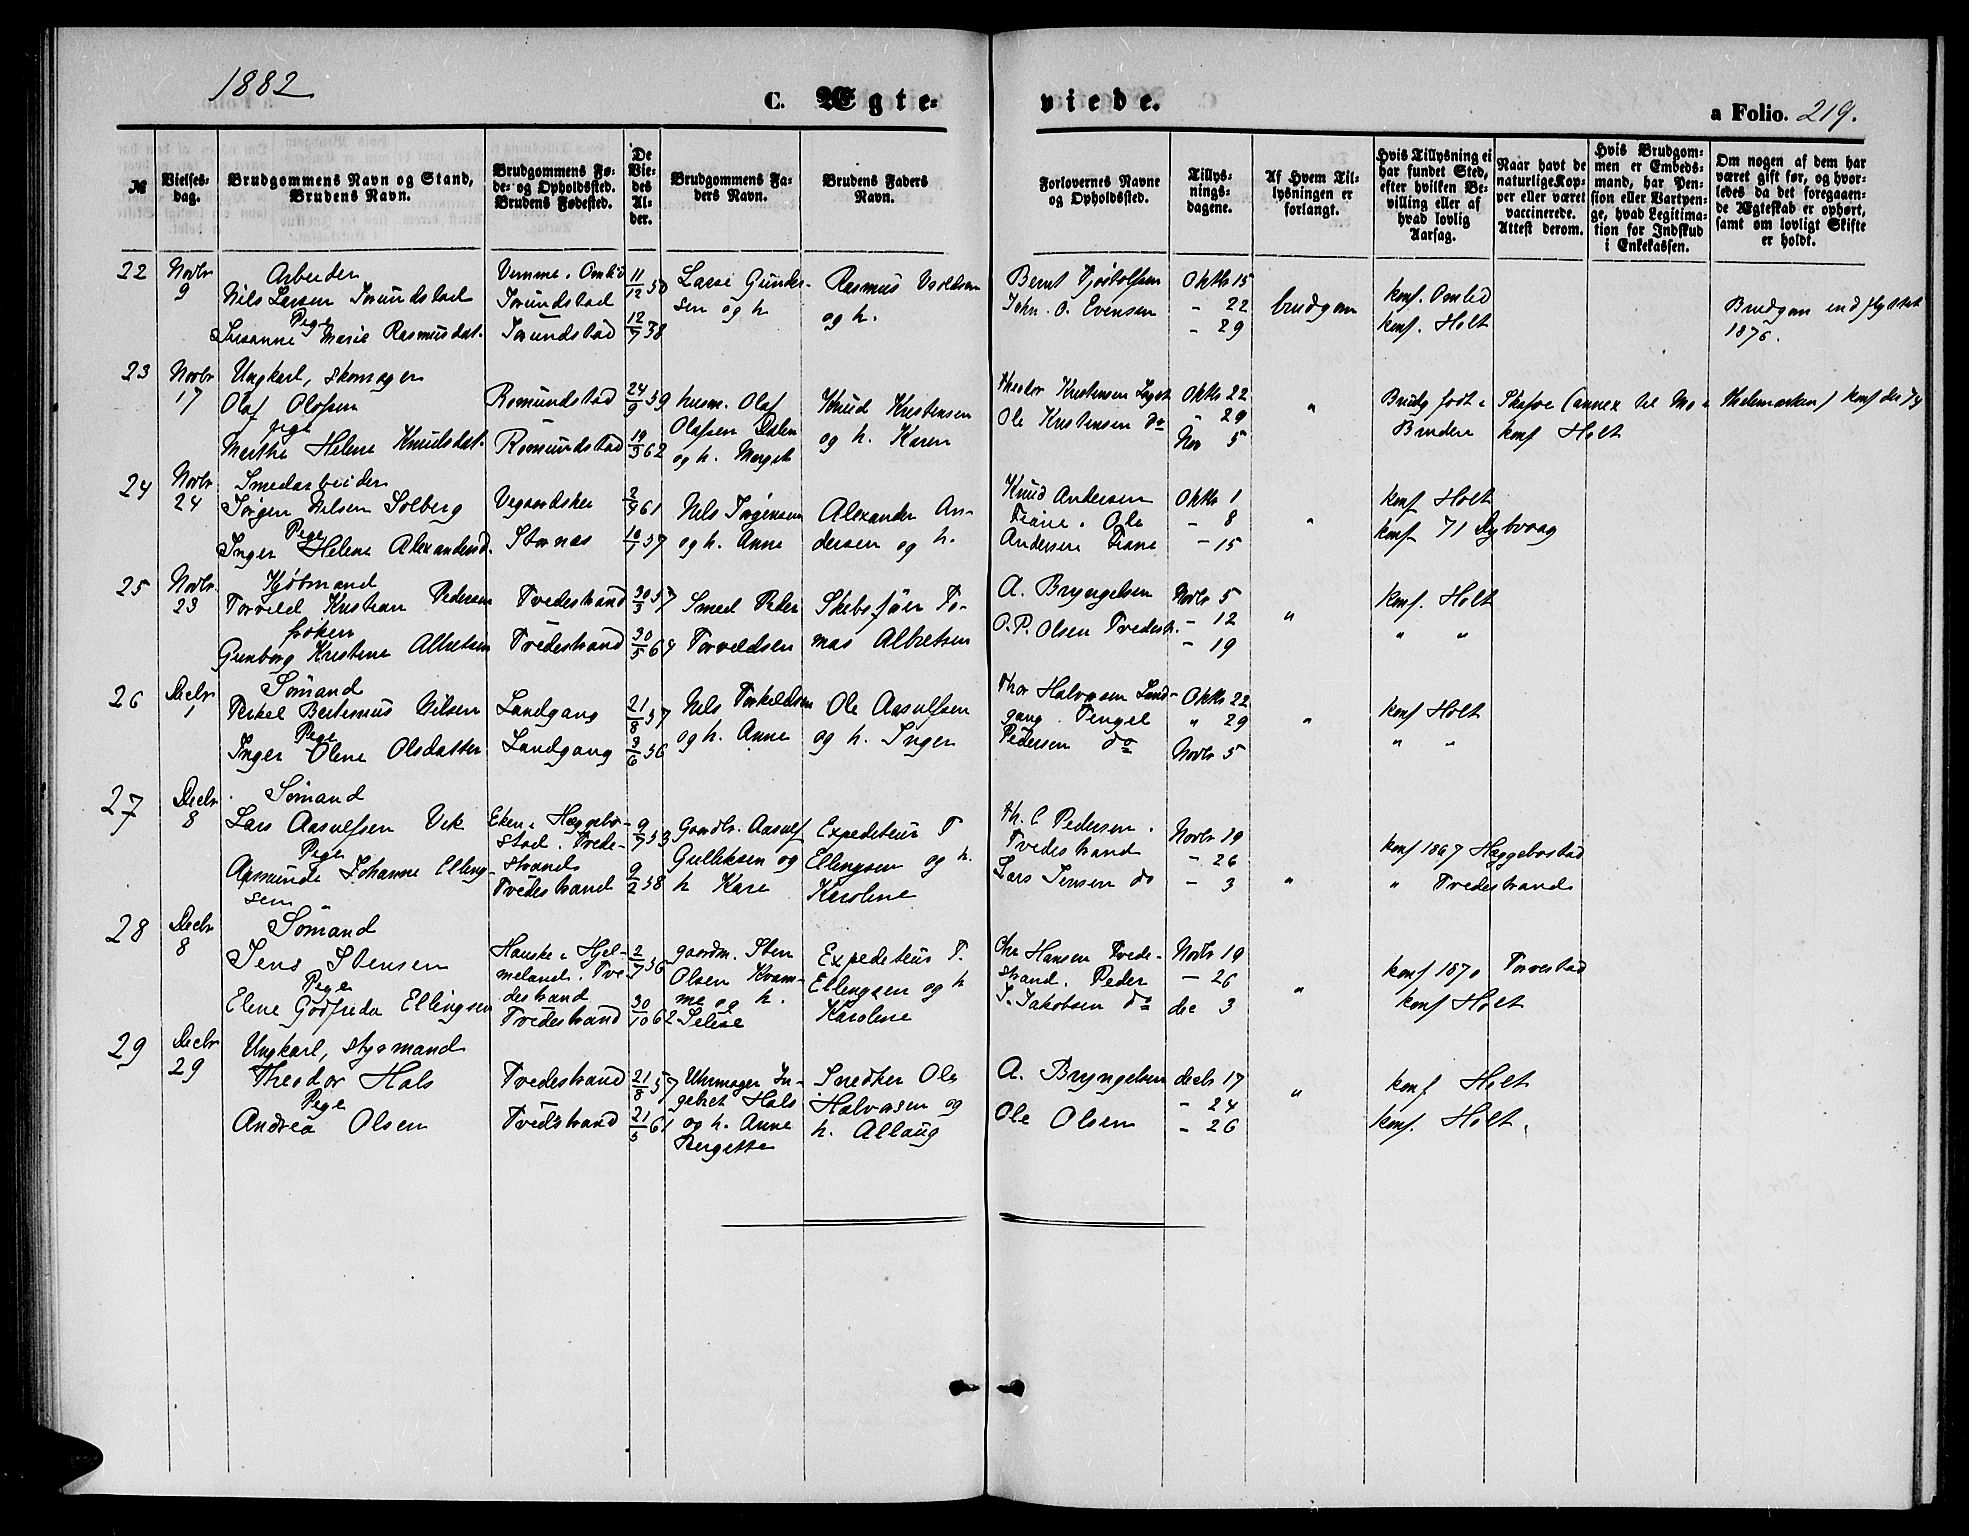 1882
C. Ægte=
viede.
a Folio. 219.
№
Vielses-
dag.
Brudgommens Navn og Stand,
Brudens Navn.
Brudgommens Fø-
de- og Opholdssted.
Brudens Fødested.
De
Vie-
des
Al-
der.
Brudgommens Fa-
ders Navn.
Brudens Faders
Navn.
Forlovernes Navne
og Opholdssted.
Tillys-
nings-
dagene.
Af Hvem Til-
lysningen er
forlangt.
Hvis Tillysning ei
har fundet Sted,
efter hvilken Be-
villing eller af
hvad lovlig
Aarsag.
Naar havt de
naturlige Kop-
per eller været
vaccinerede.
Attest derom.
Hvis Brudgom-
men er Embeds-
mand, har Pen-
sion eller Vartpen-
ge, hvad Legitima-
tion for Indskud
i Enkekassen.
Om nogen af dem har
været gift før, og hvor-
ledes da det foregaaen-
de Ægteskab er ophørt,
samt om lovligt Skifte
er holdt.
22
Novbr
9
Arbeider
Nils Larsen Torundstad
Pege
Susanne Marie Rasmusdat.
Torundstad
Torundstad
11/12 50
12/7 38
Lasse Gunder-
sen og h
Rasmus
og h.
Bernt
John. O. Evensen
Oktb 15
- 22
- 29
brudgom
konf. Omlid
konf. Holt
Brudgom indflyttet
1876.
23
Novbr
17
Ungkarl, skomager
Olaf Olofsen
pige
Merthe Helene Knudsdat.
Romundstad
Romundstad
24/9 59
19/3 62
husm. Olaf
Olafsen Dalen
og h. Merget
Knud Kristensen
og h. Karen
Kristensen
Ole Kristensen do
Oktb 22
" 29
Nov 5
"
Brudg født i Skafse (annex til Mo i Thelemarken) konf der 74
Bruden konf Holt
24
Novbr
24
Smedarbeider
Jørgen Nilsen Solberg
Pege
Inger Helene Alexandersd.
Vegaardshei
Stornæs
2/9 61
10/7 57
Nils Jørgensen
og h. Anne
Alexander An-
dersen og h.
Knud Andersen
Fiane. Ole
Andersen Fiane
Oktb 1
- 8
- 15
"
konf Holt
konf 71 Dybvaag
25
Novbr.
23
Kjøbmand
Torvild Kristian Pedersen
frøken
Gunborg Kristine Albretsen
Tvedestrand
Tvedestrand
30/3 57
30/5 64
Smed Peder
Torvildsen
Skibsfører To-
mas Albretsen
A. Bryngelsen
O.P. Olsen Tvedestr.
Novbr 5
- 12
- 19
"
konf. Holt
" "
26
Decbr
1
Sømand
Terkel Bertinius Nilsen
Pege
Inger Olene Olsdatter
Landgang
Landgang
21/8 57
3/6 56
Nils Torkeldsen
og h. Anne
Ole Aasulfsen
og h. Inger
Thor Halvorsen Land-
gang. Tengel
Pedersen do
Oktb 22
" 29
Novbr 5
"
konf Holt
" "
27
Decbr
8
Sømand
Lars Aasulfsen Vik
Pege
Aasmunde Johanne Elling-
sen
Eken i Hæggebo-
stad. Tvede-
strand
Tvedestrand
9/7 53
9/2 58
Gaardbr. Aasulf
Gulliksen og
h Kare
Expediteur T
Ellingsen og h.
Karoline
Th. C Pedersen.
Tvedestrand
Lars Jensen do
Novbr 19
- 26
- 3
"
konf 1867 Hæggebostad
" Tvedestrand
28
Decbr
8
Sømand
Jens Stensen
Pege
Elene Godfreda Ellingsen
Hauske i Hjel-
meland. Tve-
destrand
Tvedestrand
2/7 56
30/10 62
gaardm. Sten
Olsen Kvam-
me og h.
Selise
Expediteur T.
Ellingsen og h
Karoline
Chr Hansen Tvede-
strand. Peder
T. Jakobsen do
Novbr 19
- 26
dec 3
"
konf 1870 Torvestad
konf Holt
29
Decbr
29
Ungkarl, styrmand
Theodor Hals
Pege
Andrea Olsen
Tvedestrand
Tvedstrand
21/8 57
21/5 61
Uhrmager In-
gebret Hals
og h. Anne
Bergette
Snedker Ole
Halvorsen og
h. Allaug
A. Bryngelsen
Ole Olsen
decbr 17
- 24
- 26
"
konf Holt
konf. Holt.